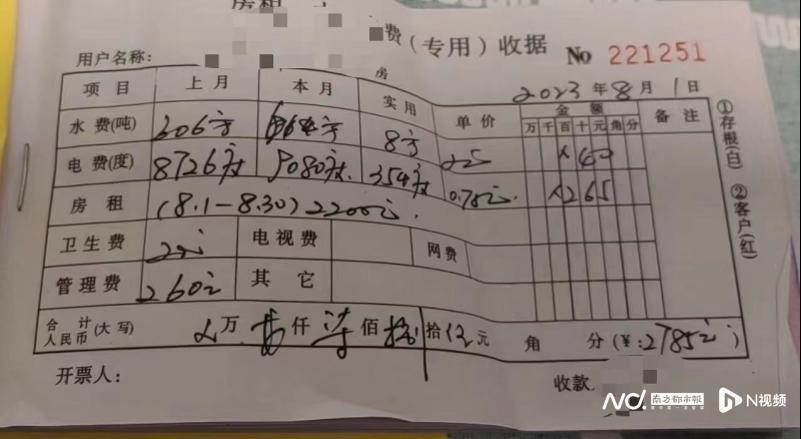 房租
费(专用)收据 No 221251
用户名称: 房 2023年8月1日
项目 上月 本月 实用 单价 金额 备注
万千百十元角分
水费(吨) 606方 8方 ¥40
电费(度) 8726度 9080度 354度 0.75元 ¥265
房租 (8.1-8.30) 2200元
卫生费 电视费 网费
管理费 260元 其它
合计人民币(大写) 万 仟 柒佰 拾 元 角 分(¥:2785元)
开票人: 收款
①存根(白) ②客户(红)
ND 南方都市报 N视频